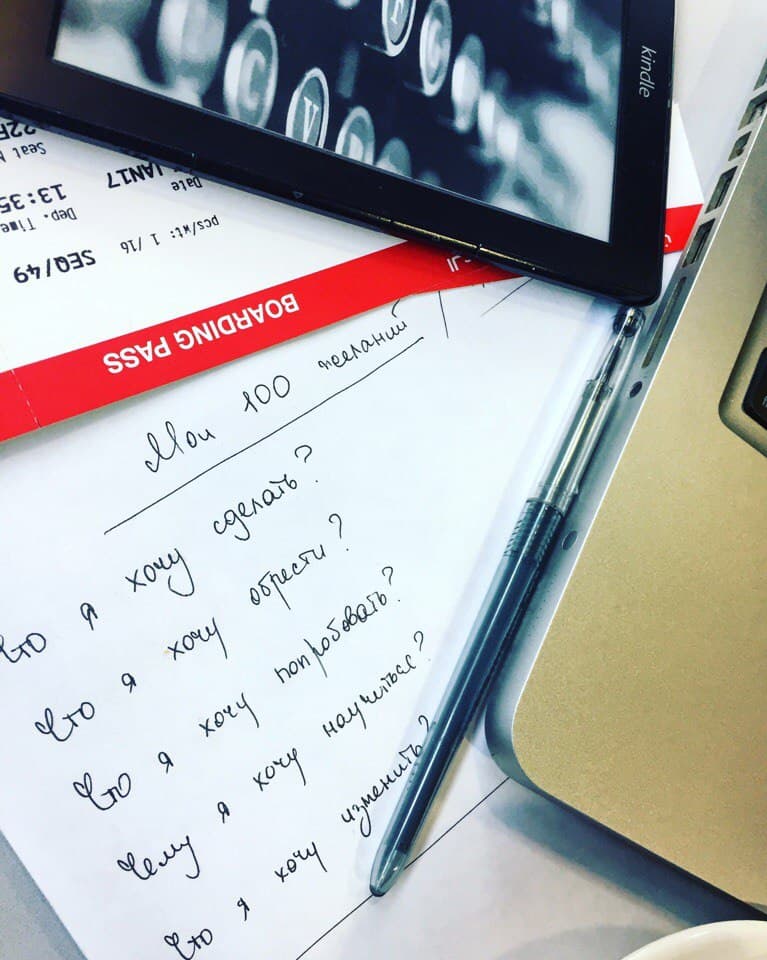 kindle
C
V
22F
Seat
JAN17
Date
13:35
Dep. Time
pcs/wt: 1 /16
SEQ/49
BOARDING PASS
Мои 100 желаний
Что я хочу сделать?
Что я хочу обрести?
Что я хочу попробовать?
Чему я хочу научиться?
Что я хочу изменить?